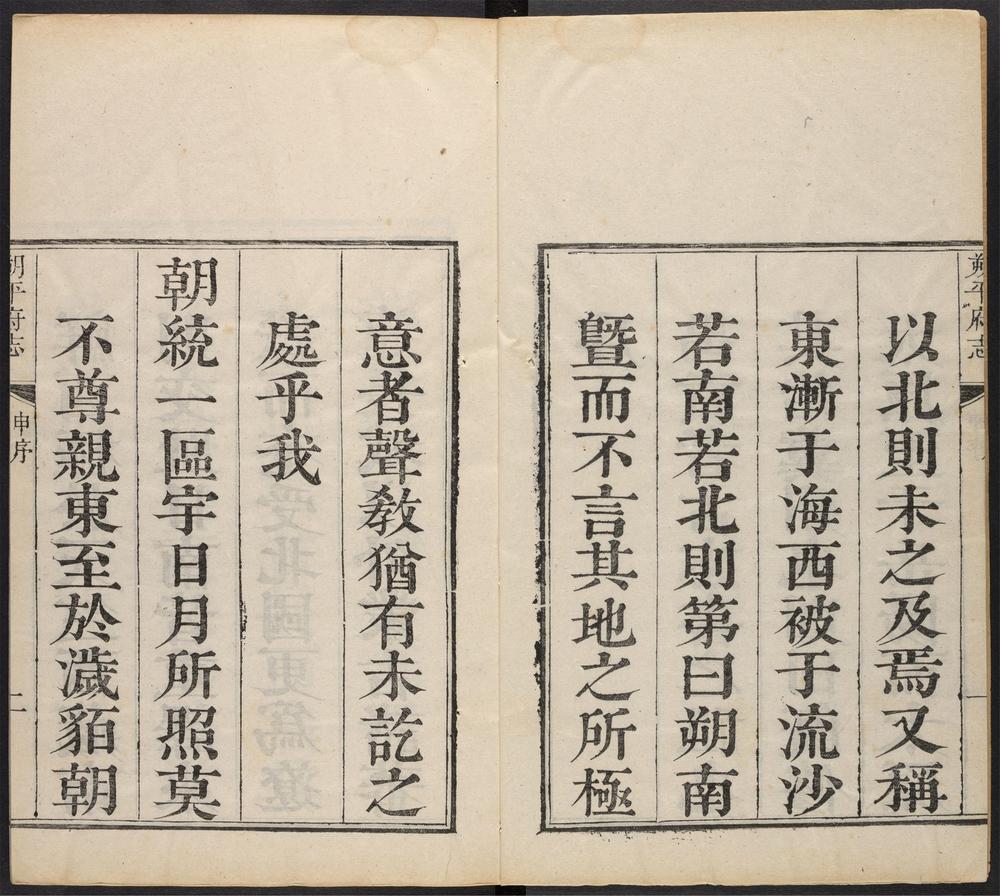 朔平府志
以北則未之及焉又稱
東漸于海西被于流沙
若南若北則第曰朔南
曁而不言其地之所極
意者聲敎猶有未訖之
處乎我
朝統一區宇日月所照莫
不尊親東至於濊貊朝
朔平府志
申序
二